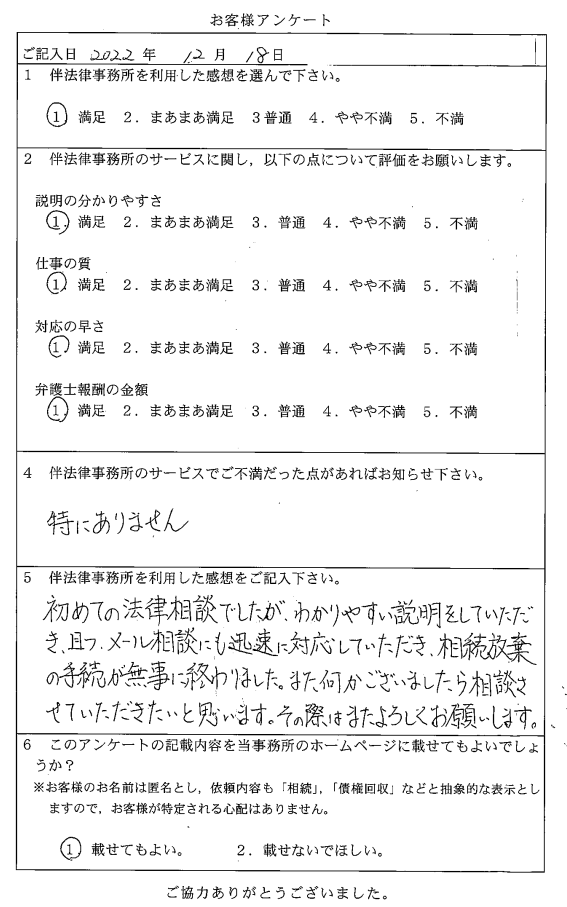 お客様アンケート
ご記入日 2022 年 12 月 18 日
1 伴法律事務所を利用した感想を選んで下さい。
1. 満足 2. まあまあ満足 3 普通 4. やや不満 5. 不満
2 伴法律事務所のサービスに関し，以下の点について評価をお願いします。
説明の分かりやすさ
1. 満足 2. まあまあ満足 3. 普通 4. やや不満 5. 不満
仕事の質
1. 満足 2. まあまあ満足 3. 普通 4. やや不満 5. 不満
対応の早さ
1. 満足 2. まあまあ満足 3. 普通 4. やや不満 5. 不満
弁護士報酬の金額
1. 満足 2. まあまあ満足 3. 普通 4. やや不満 5. 不満
4 伴法律事務所のサービスでご不満だった点があればお知らせ下さい。
特にありません
5 伴法律事務所を利用した感想をご記入下さい。
初めての法律相談でしたが、わかりやすい説明をしていただ
き、且つ、メール相談にも迅速に対応していただき、相続放棄
の手続が無事に終わりました。また何かございましたら相談さ
せていただきたいと思います。その際はまたよろしくお願いします。
6 このアンケートの記載内容を当事務所のホームページに載せてもよいでしょ
うか？
※お客様のお名前は匿名とし，依頼内容も「相続」，「債権回収」などと抽象的な表示とし
ますので，お客様が特定される心配はありません。
1. 載せてもよい。 2. 載せないでほしい。
ご協力ありがとうございました。